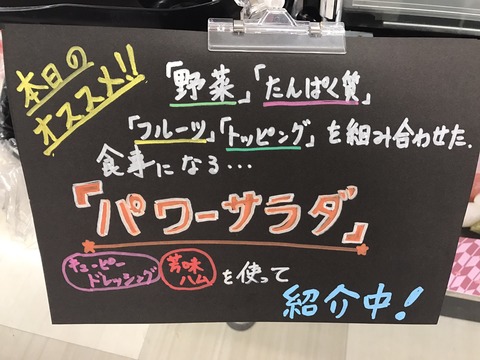 本日の
オススメ!!
「野菜」「たんぱく質」
「フルーツ」「トッピング」を組み合わせた.
食事になる・・・
「パワーサラダ」
キューピー
ドレッシング
芳味
ハム
を使って
紹介中!